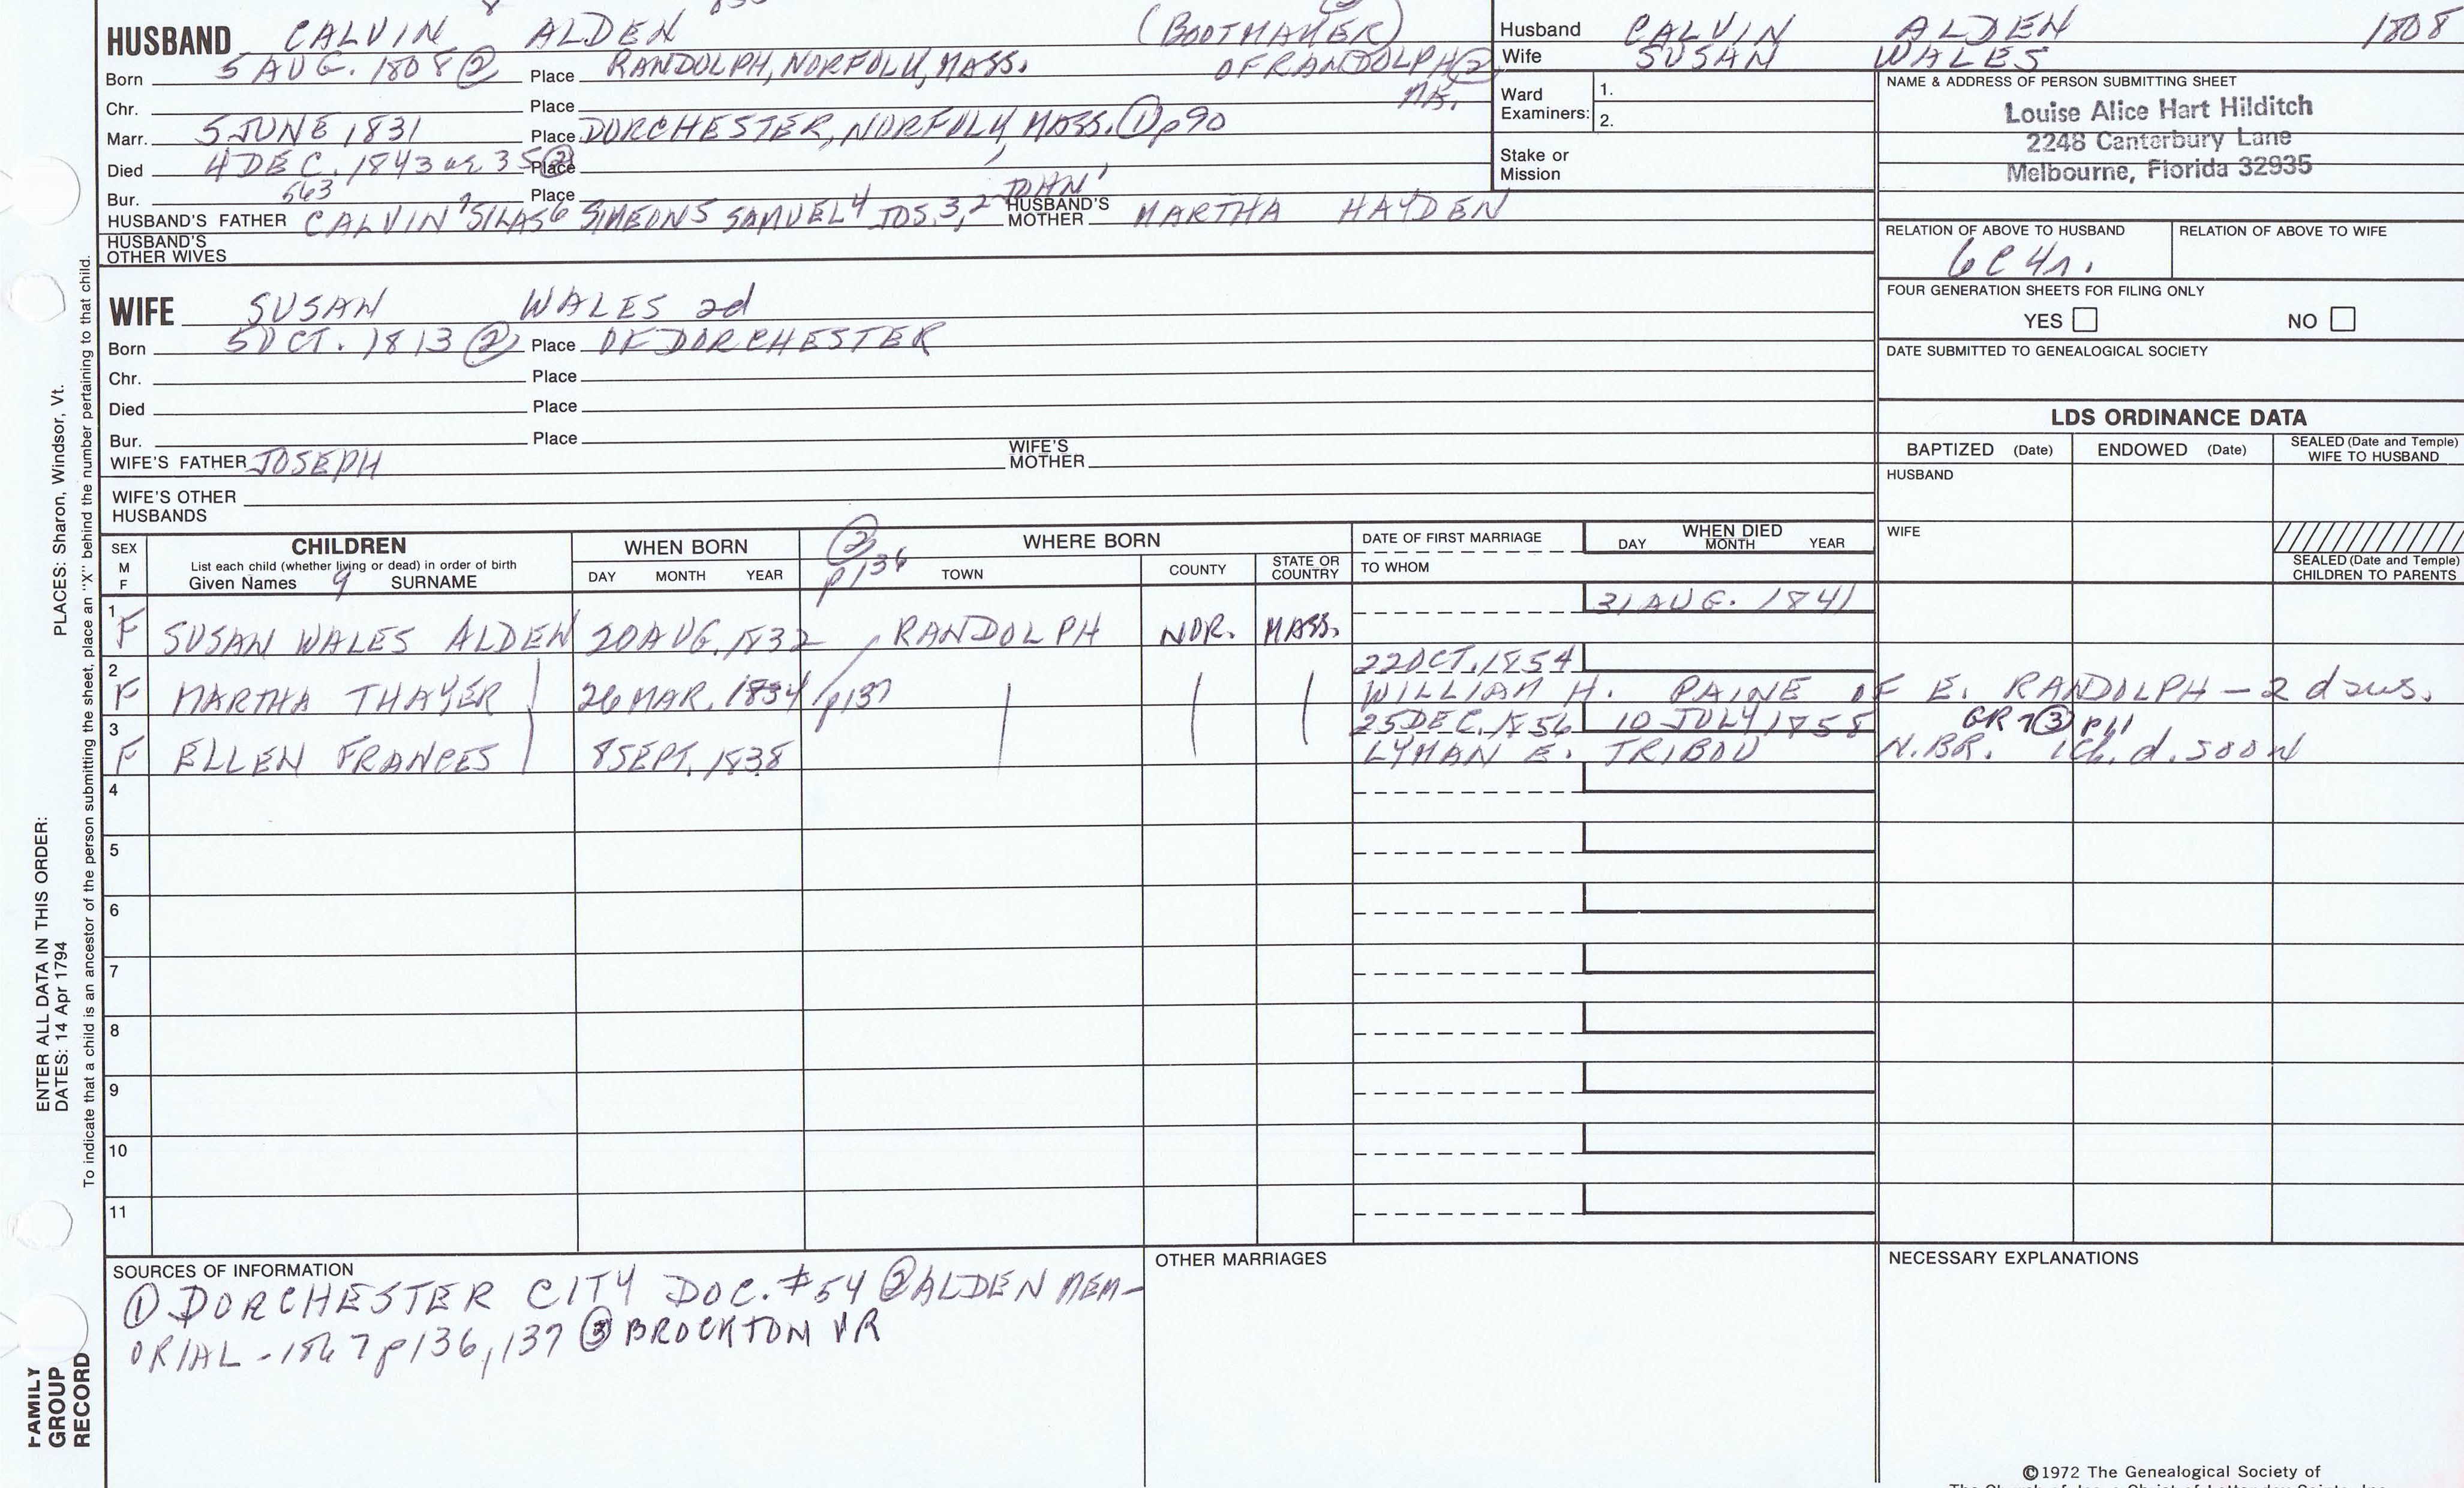 HUSBAND CALVIN ALDEN (BOOTMAKER)
Born 5 AUG. 1808 ② Place RANDOLPH, NORFOLK, MASS. OF RANDOLPH ② MA.
Chr. Place
Marr. 5 JUNE 1831 Place DORCHESTER, NORFOLK, MASS. ① p90
Died 4 DEC. 1843 ae 35 ② Place
Bur. Place
563
HUSBAND'S FATHER CALVIN 7 SILAS 6 SIMEON 5 SAMUEL 4 JOS. 3, 2 JOHN 1 HUSBAND'S MOTHER MARTHA HAYDEN
HUSBAND'S
OTHER WIVES
WIFE SUSAN WALES 2d
Born 5 OCT. 1813 ② Place OF DORCHESTER
Chr. Place
Died Place
Bur. Place
WIFE'S FATHER JOSEPH WIFE'S MOTHER
WIFE'S OTHER
HUSBANDS
Husband CALVIN ALDEN 1808
Wife SUSAN WALES
Ward
Examiners: 1.
2.
Stake or
Mission
NAME & ADDRESS OF PERSON SUBMITTING SHEET
Louise Alice Hart Hilditch
2248 Canterbury Lane
Melbourne, Florida 32935
RELATION OF ABOVE TO HUSBAND RELATION OF ABOVE TO WIFE
6C4r.
FOUR GENERATION SHEETS FOR FILING ONLY
YES NO
DATE SUBMITTED TO GENEALOGICAL SOCIETY
LDS ORDINANCE DATA
BAPTIZED (Date) ENDOWED (Date) SEALED (Date and Temple)
WIFE TO HUSBAND
HUSBAND
WIFE
SEALED (Date and Temple)
CHILDREN TO PARENTS
SEX
M
F
CHILDREN
List each child (whether living or dead) in order of birth
Given Names 9 SURNAME
WHEN BORN
DAY MONTH YEAR
② p136
WHERE BORN
TOWN COUNTY STATE OR
COUNTRY
DATE OF FIRST MARRIAGE
TO WHOM
WHEN DIED
DAY MONTH YEAR
1 F SUSAN WALES ALDEN 20 AUG. 1832 RANDOLPH NOR. MASS. 31 AUG. 1841
2 F MARTHA THAYER 26 MAR. 1834 p137 22 OCT. 1854
WILLIAM H. PAINE OF E. RANDOLPH - 2 daus.
3 F ELLEN FRANCES 8 SEPT. 1838 25 DEC. 1856 10 JULY 1858 GR 7 ③ p11
LYMAN E. TRIBOU N. BR. 1 ch. d. soon
4
5
6
7
8
9
10
11
SOURCES OF INFORMATION
① DORCHESTER CITY DOC. #54 ② ALDEN MEM-
ORIAL - 1867 p136, 137 ③ BROCKTON VR
OTHER MARRIAGES
NECESSARY EXPLANATIONS
©1972 The Genealogical Society of
PLACES: Sharon, Windsor, Vt.
ENTER ALL DATA IN THIS ORDER:
DATES: 14 Apr 1794
To indicate that a child is an ancestor of the person submitting the sheet, place an "X" behind the number pertaining to that child.
FAMILY
GROUP
RECORD